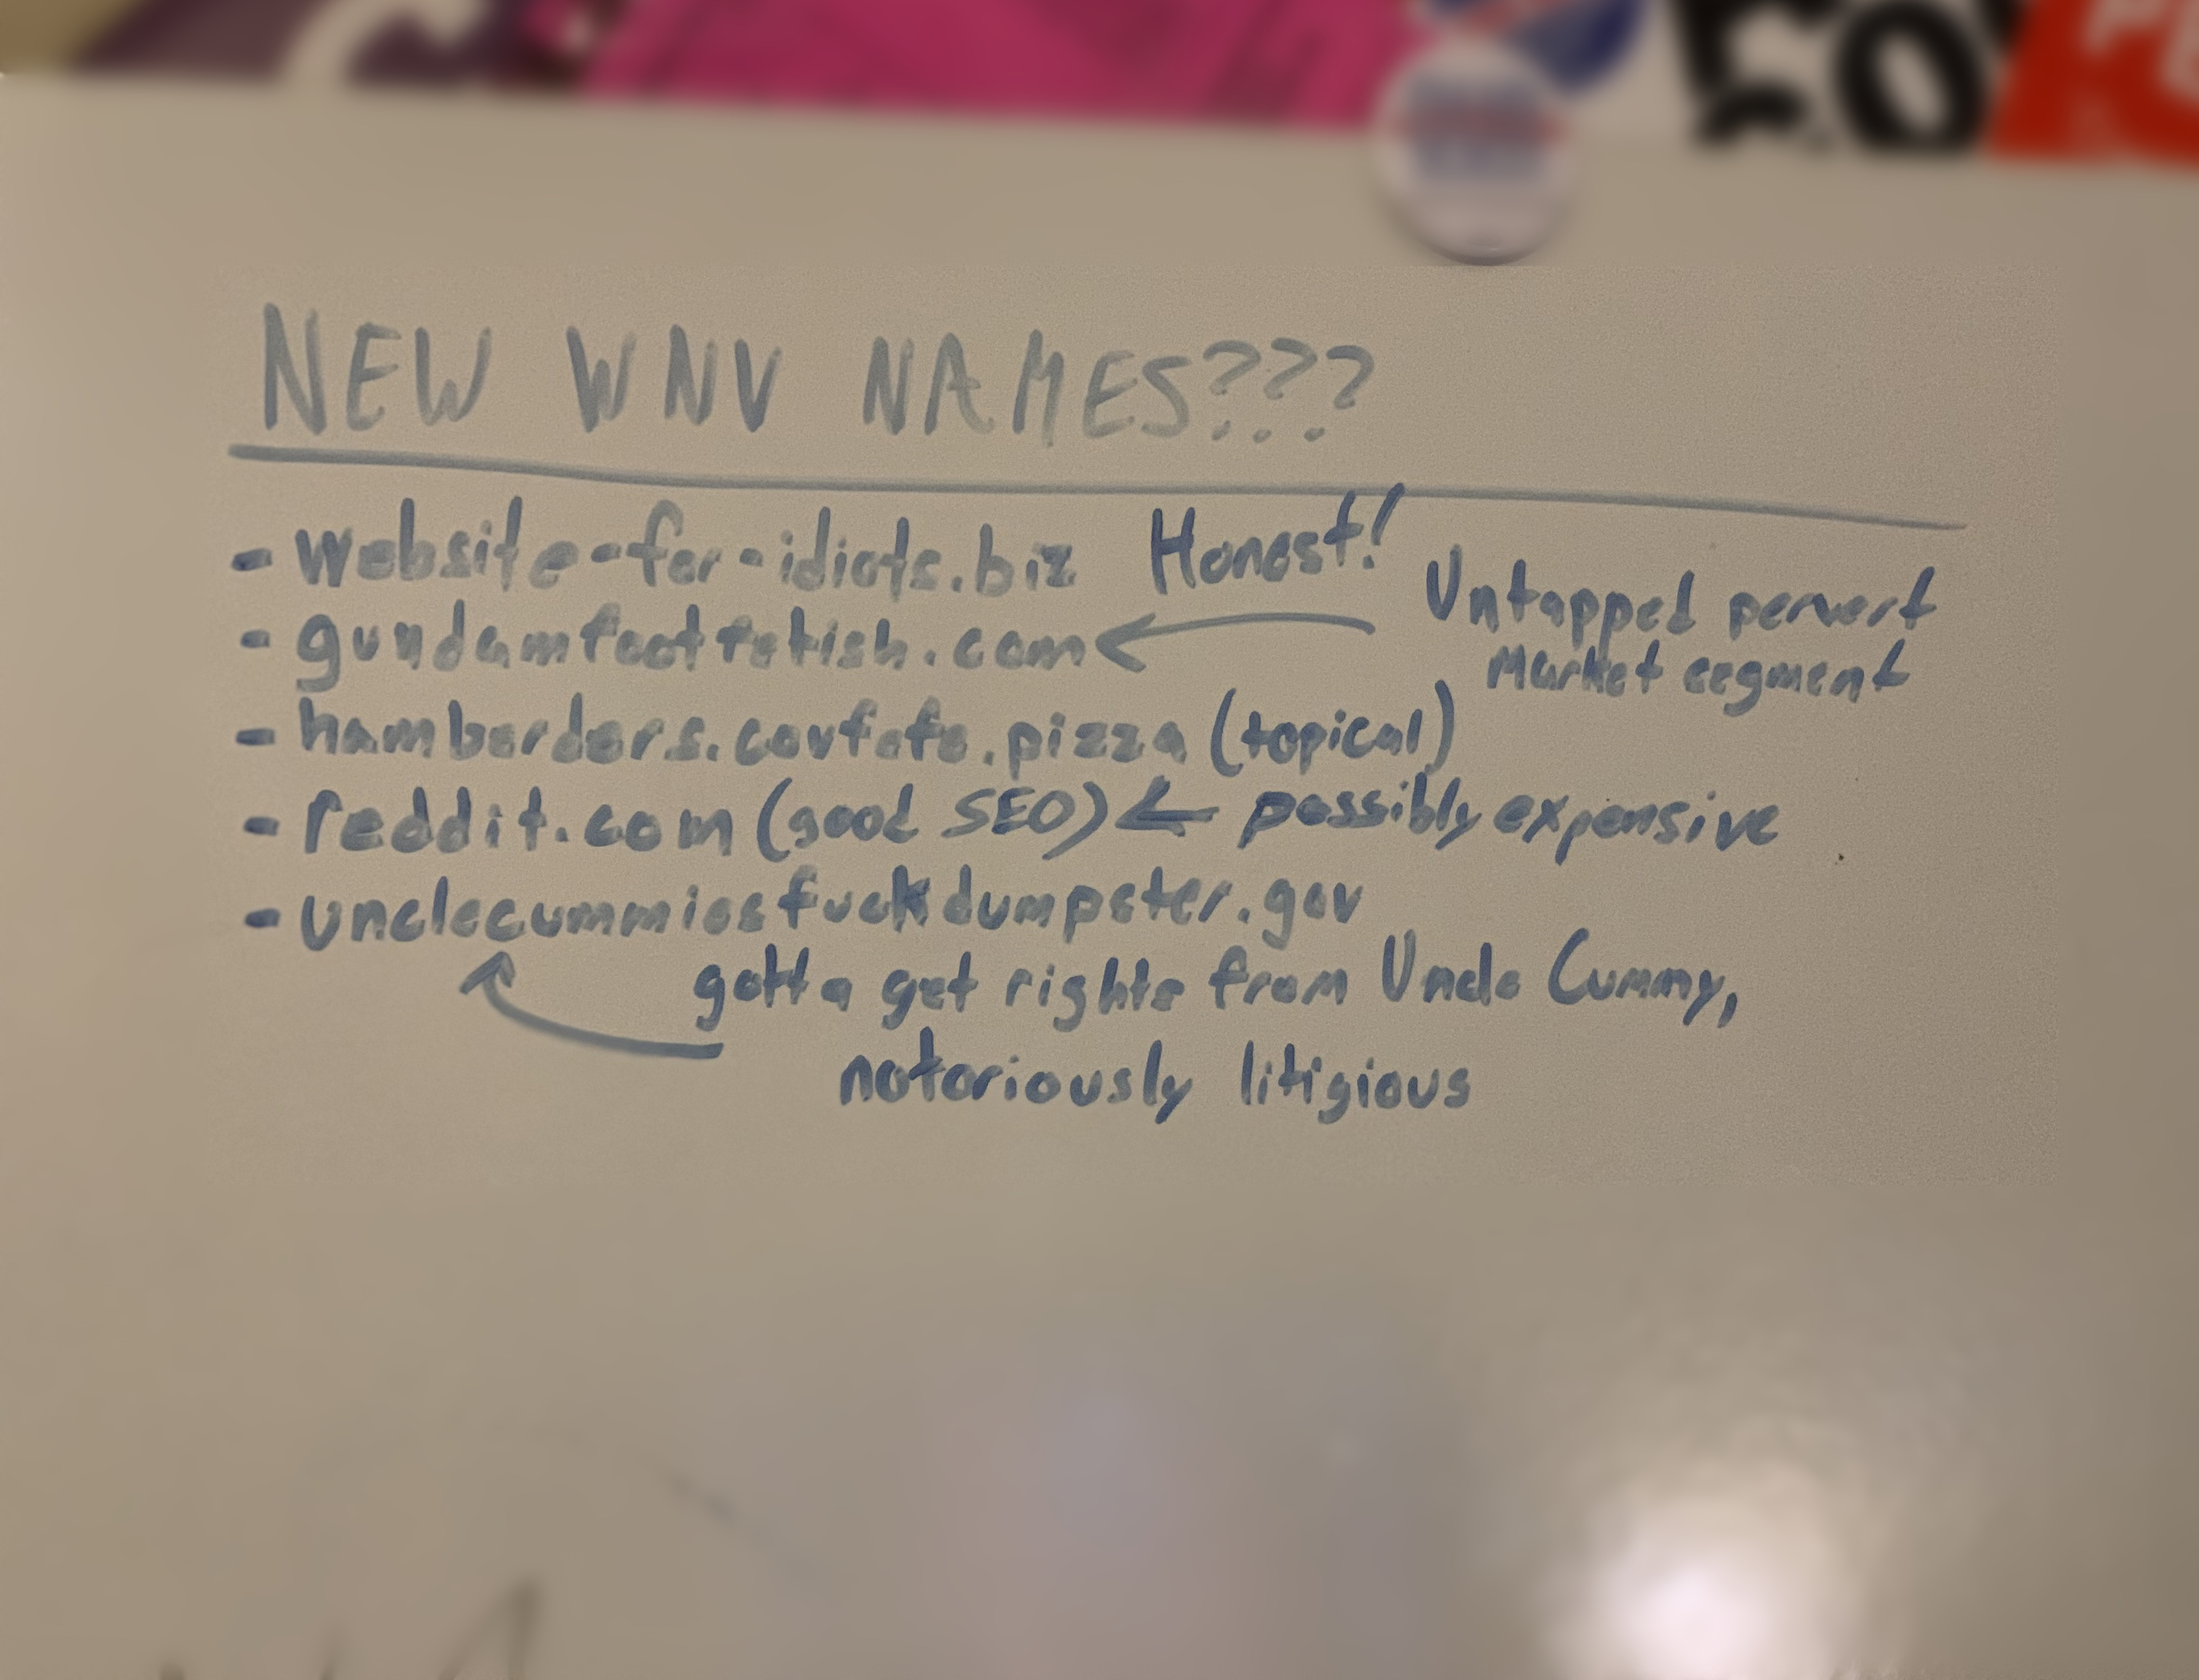 NEW WNV NAMES???
- website-for-idiots.biz Honest!
- gundamfootfetish.com ← Untapped pervert
Market segment
- hamberders.covfefe.pizza (topical)
- reddit.com (good SEO) ← possibly expensive
- unclecummiesfuckdumpster.gov
gotta get rights from Uncle Cummy,
notoriously litigious